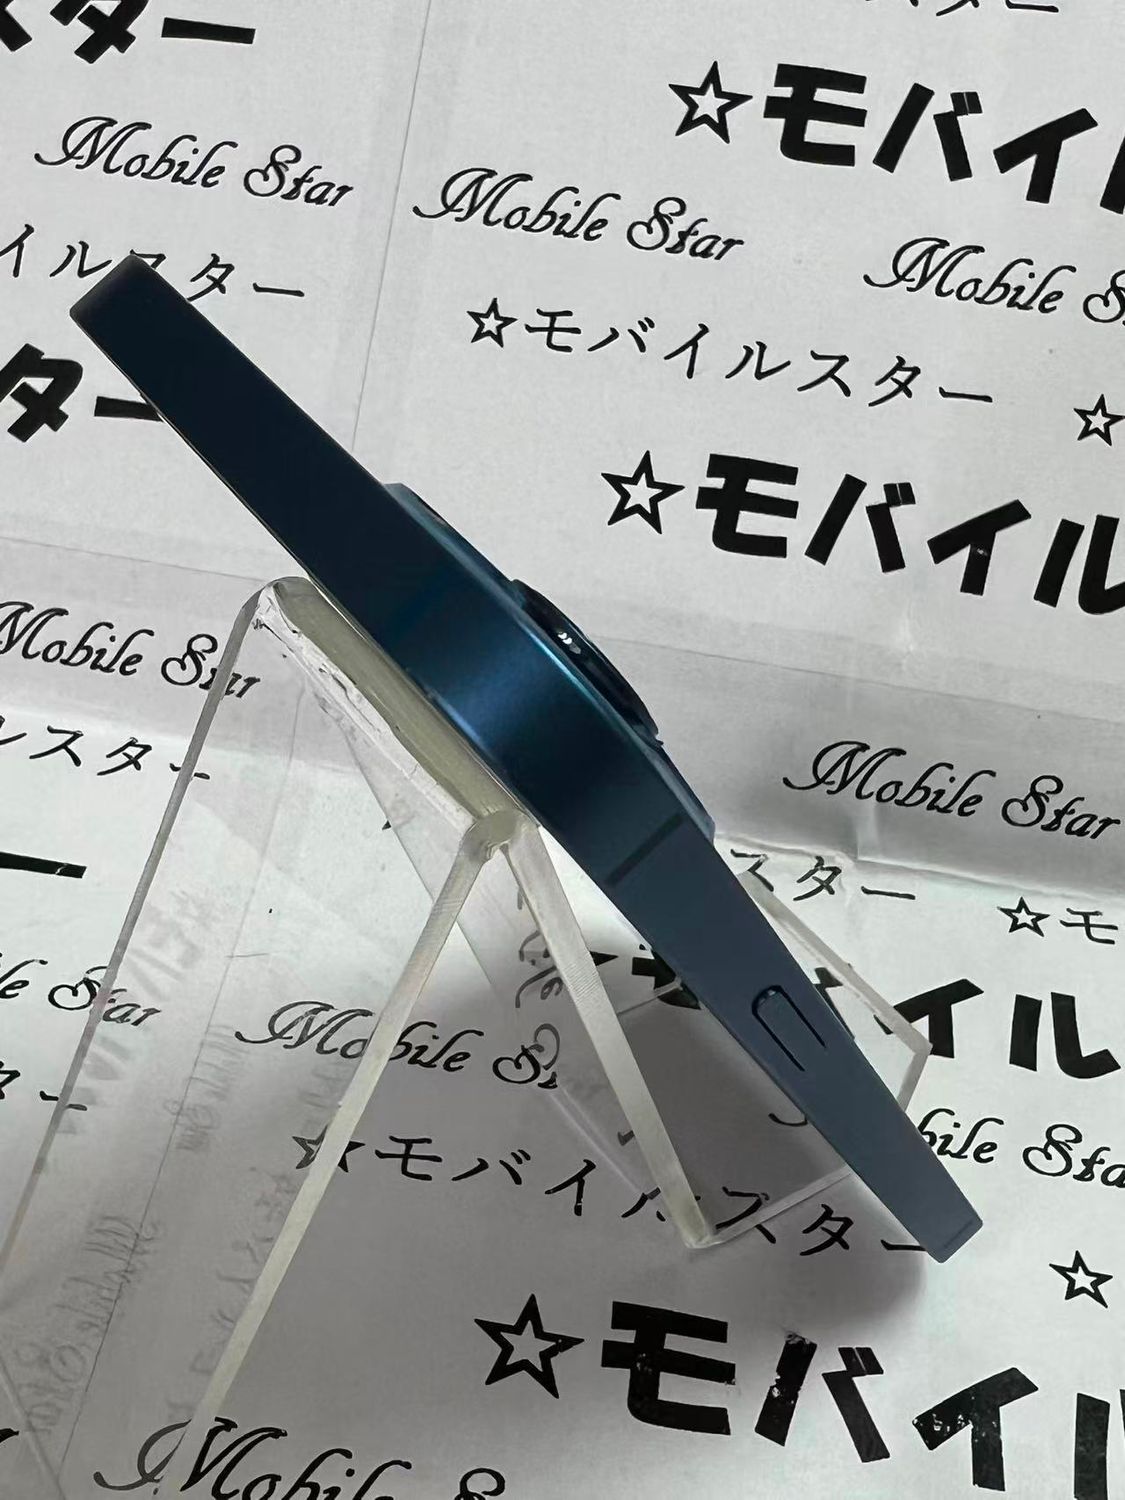 スター
スター
☆モバイ
Mobile Star
Mobile Star
Mobile
イルスター
☆モバイルスター
☆
ター
☆モバイル
Mobile Star
Mobile Star
ルスター
スター
☆モ
ー
イル
Star
Mobile
ile Sta
ター
☆モバイルスター
☆
☆モバイル
Mobile S